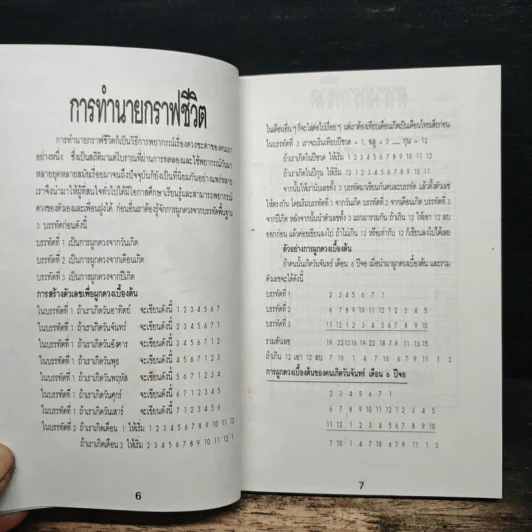 การทำนายกราฟชีวิต
การทำนายกราฟชีวิตก็เป็นวิธีการพยากรณ์เรื่องดวงชะตาของคนเรา
อย่างหนึ่ง ซึ่งเป็นสถิติมาแต่โบราณที่ผ่านการทดลองและใช้พยากรณ์กันมา
หลายยุคหลายสมัยเรื่อยมาจนถึงปัจจุบันก็ยังเป็นที่นิยมกันอย่างแพร่หลาย
เราจึงนำมาให้ผู้ที่สนใจทั่วไปได้มีโอกาสศึกษาเรียนรู้และสามารถพยากรณ์
ดวงของตัวเองและเพื่อนฝูงได้ ก่อนอื่นเราต้องรู้จักการผูกดวงจากบรรทัดพื้นฐาน
3 บรรทัดก่อนดังนี้
บรรทัดที่ 1 เป็นการผูกดวงจากวันเกิด
บรรทัดที่ 2 เป็นการผูกดวงจากเดือนเกิด
บรรทัดที่ 3 เป็นการผูกดวงจากปีเกิด
การสร้างตัวเลขเพื่อผูกดวงเบื้องต้น
ในบรรทัดที่ 1 ถ้าเราเกิดวันอาทิตย์ จะเขียนดังนี้ 1 2 3 4 5 6 7
ในบรรทัดที่ 1 ถ้าเราเกิดวันจันทร์ จะเขียนดังนี้ 2 3 4 5 6 7 1
ในบรรทัดที่ 1 ถ้าเราเกิดวันอังคาร จะเขียนดังนี้ 3 4 5 6 7 1 2
ในบรรทัดที่ 1 ถ้าเราเกิดวันพุธ จะเขียนดังนี้ 4 5 6 7 1 2 3
ในบรรทัดที่ 1 ถ้าเราเกิดวันพฤหัส จะเขียนดังนี้ 5 6 7 1 2 3 4
ในบรรทัดที่ 1 ถ้าเราเกิดวันศุกร์ จะเขียนดังนี้ 6 7 1 2 3 4 5
ในบรรทัดที่ 1 ถ้าเราเกิดวันเสาร์ จะเขียนดังนี้ 7 1 2 3 4 5 6
ในบรรทัดที่ 2 ถ้าเราเกิดเดือน 1 ให้เริ่ม 1 2 3 4 5 6 7 8 9 10 11 12
ถ้าเราเกิดเดือน 2 ให้เริ่ม 2 3 4 5 6 7 8 9 10 11 12 1
6
ในเดือนอื่นๆ ก็จะไล่ต่อไปเรื่อยๆ แต่เราต้องเทียบเดือนเกิดเป็นเดือนไทยเสียก่อน
ในบรรทัดที่ 3 เราจะเริ่มปีชวด = 1, ฉลู = 2 ... กุน = 12
ถ้าเราเกิดในปีชวด ให้เริ่ม 1 2 3 4 5 6 7 8 9 10 11 12
ถ้าเราเกิดในปีกุน ให้เริ่ม 12 1 2 3 4 5 6 7 8 9 10 11
จากนั้นให้เรานับเลขทั้ง 3 บรรทัดมาเขียนกันคนละบรรทัด แล้วตั้งตัวเลข
ให้ตรงกัน โดยเริ่มบรรทัดที่ 1 จากวันเกิด บรรทัดที่ 2 จากเดือนเกิด บรรทัดที่ 3
จากปีเกิด หลังจากนั้นนำตัวเลขทั้ง 3 แถวมารวมกัน ถ้าเกิน 12 ให้เอา 12 ลบ
ออกก่อน แล้วค่อยเขียนลงไป ถ้าไม่เกิน 12 หรือเท่ากับ 12 ก็เขียนลงไปได้เลย
ตัวอย่างการผูกดวงเบื้องต้น
ถ้าคนนั้นเกิดวันจันทร์ เดือน 6 ปีจอ เมื่อนำมาผูกดวงเบื้องต้น และรวม
ตัวเลขจะได้ดังนี้
บรรทัดที่ 1 2 3 4 5 6 7 1
บรรทัดที่ 2 6 7 8 9 10 11 12 1 2 3 4 5
บรรทัดที่ 3 11 12 1 2 3 4 5 6 7 8 9 10
รวมตัวเลข 19 22 13 16 19 22 18 7 9 11 13 15
ถ้าเกิน 12 เอา 12 ลบ 7 10 1 4 7 10 6 7 9 11 1 3
การผูกดวงเบื้องต้นของคนเกิดวันจันทร์ เดือน 6 ปีจอ
2 3 4 5 6 7 1
6 7 8 9 10 11 12 1 2 3 4 5
11 12 1 2 3 4 5 6 7 8 9 10
7